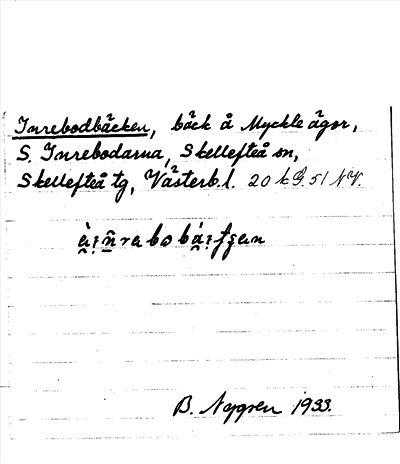 Inrebodbäcken, bäck å Myckle ägor,
S. Inrebodarna, Skellefteå sn,
Skellefteå tg, Västerb.l. 20 k G. 51 NV.
B. Nygren 1933.